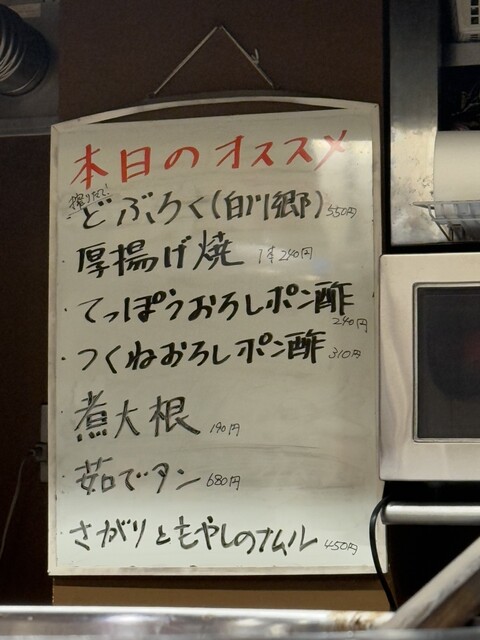 本日のオススメ
搾りたて!
・どぶろく(白川郷) 550円
厚揚げ焼 1本240円
・てっぽうおろしポン酢
240円
・つくねおろしポン酢 310円
・煮大根 190円
・茹でタン 680円
・さがりともやしのナムル 450円